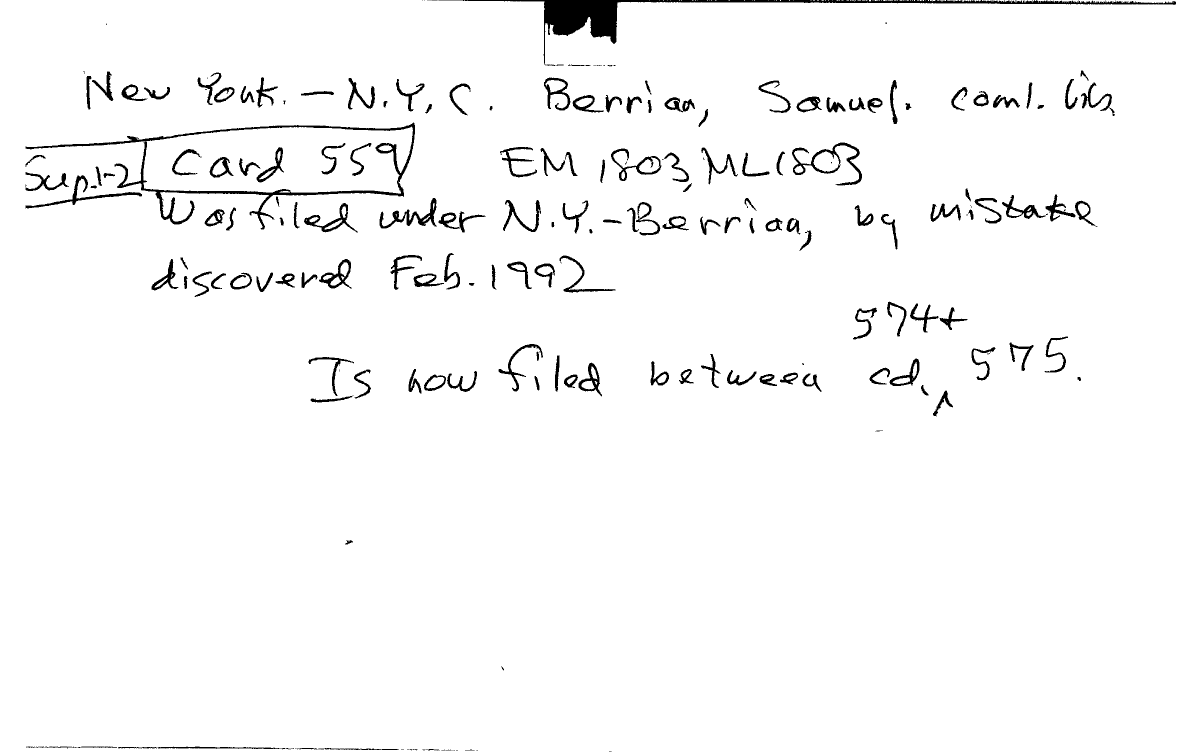 New York. — N.Y.C. Berrian, Samuel. coml. lib.
Sup.1-2 Card 559 EM 1803, ML 1803
Was filed under N.Y.-Berrian, by mistake
discovered Feb. 1992
574+
Is now filed between cd. ^ 575.